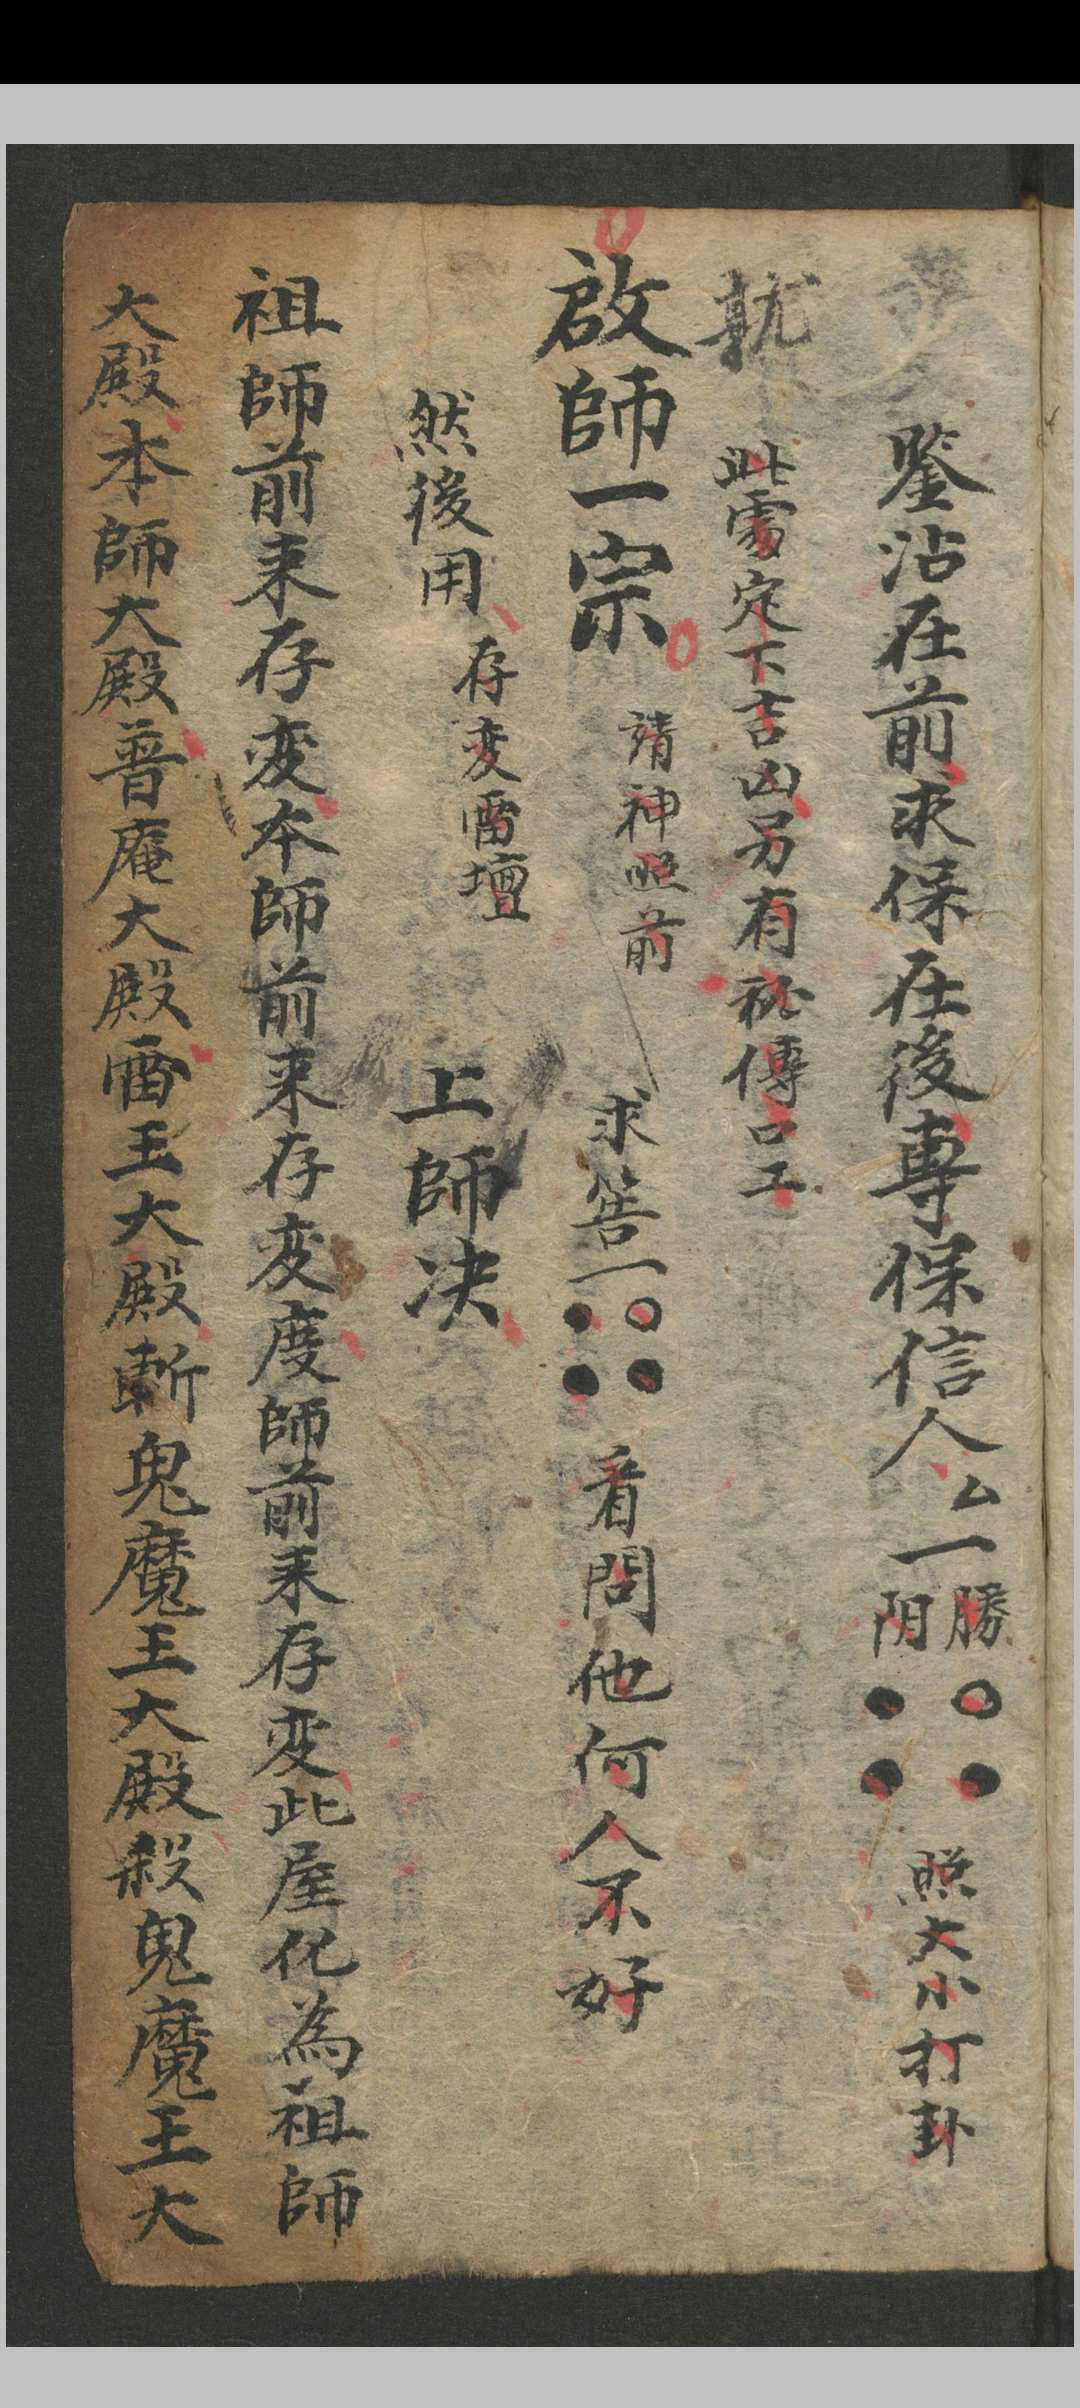 鑒沾在前求保在後專保信人厶一勝○●阴●●照大小打卦
就此處定下吉凶另有秘傳口工
啟師一宗請神照前求筶一○●●●看問他何人不好
然後用存变雷壇上師决
祖師前来存变本師前来存变度師前来存变此屋化為祖師
大殿本師大殿普庵大殿雷王大殿斬鬼魔王大殿殺鬼魔王大